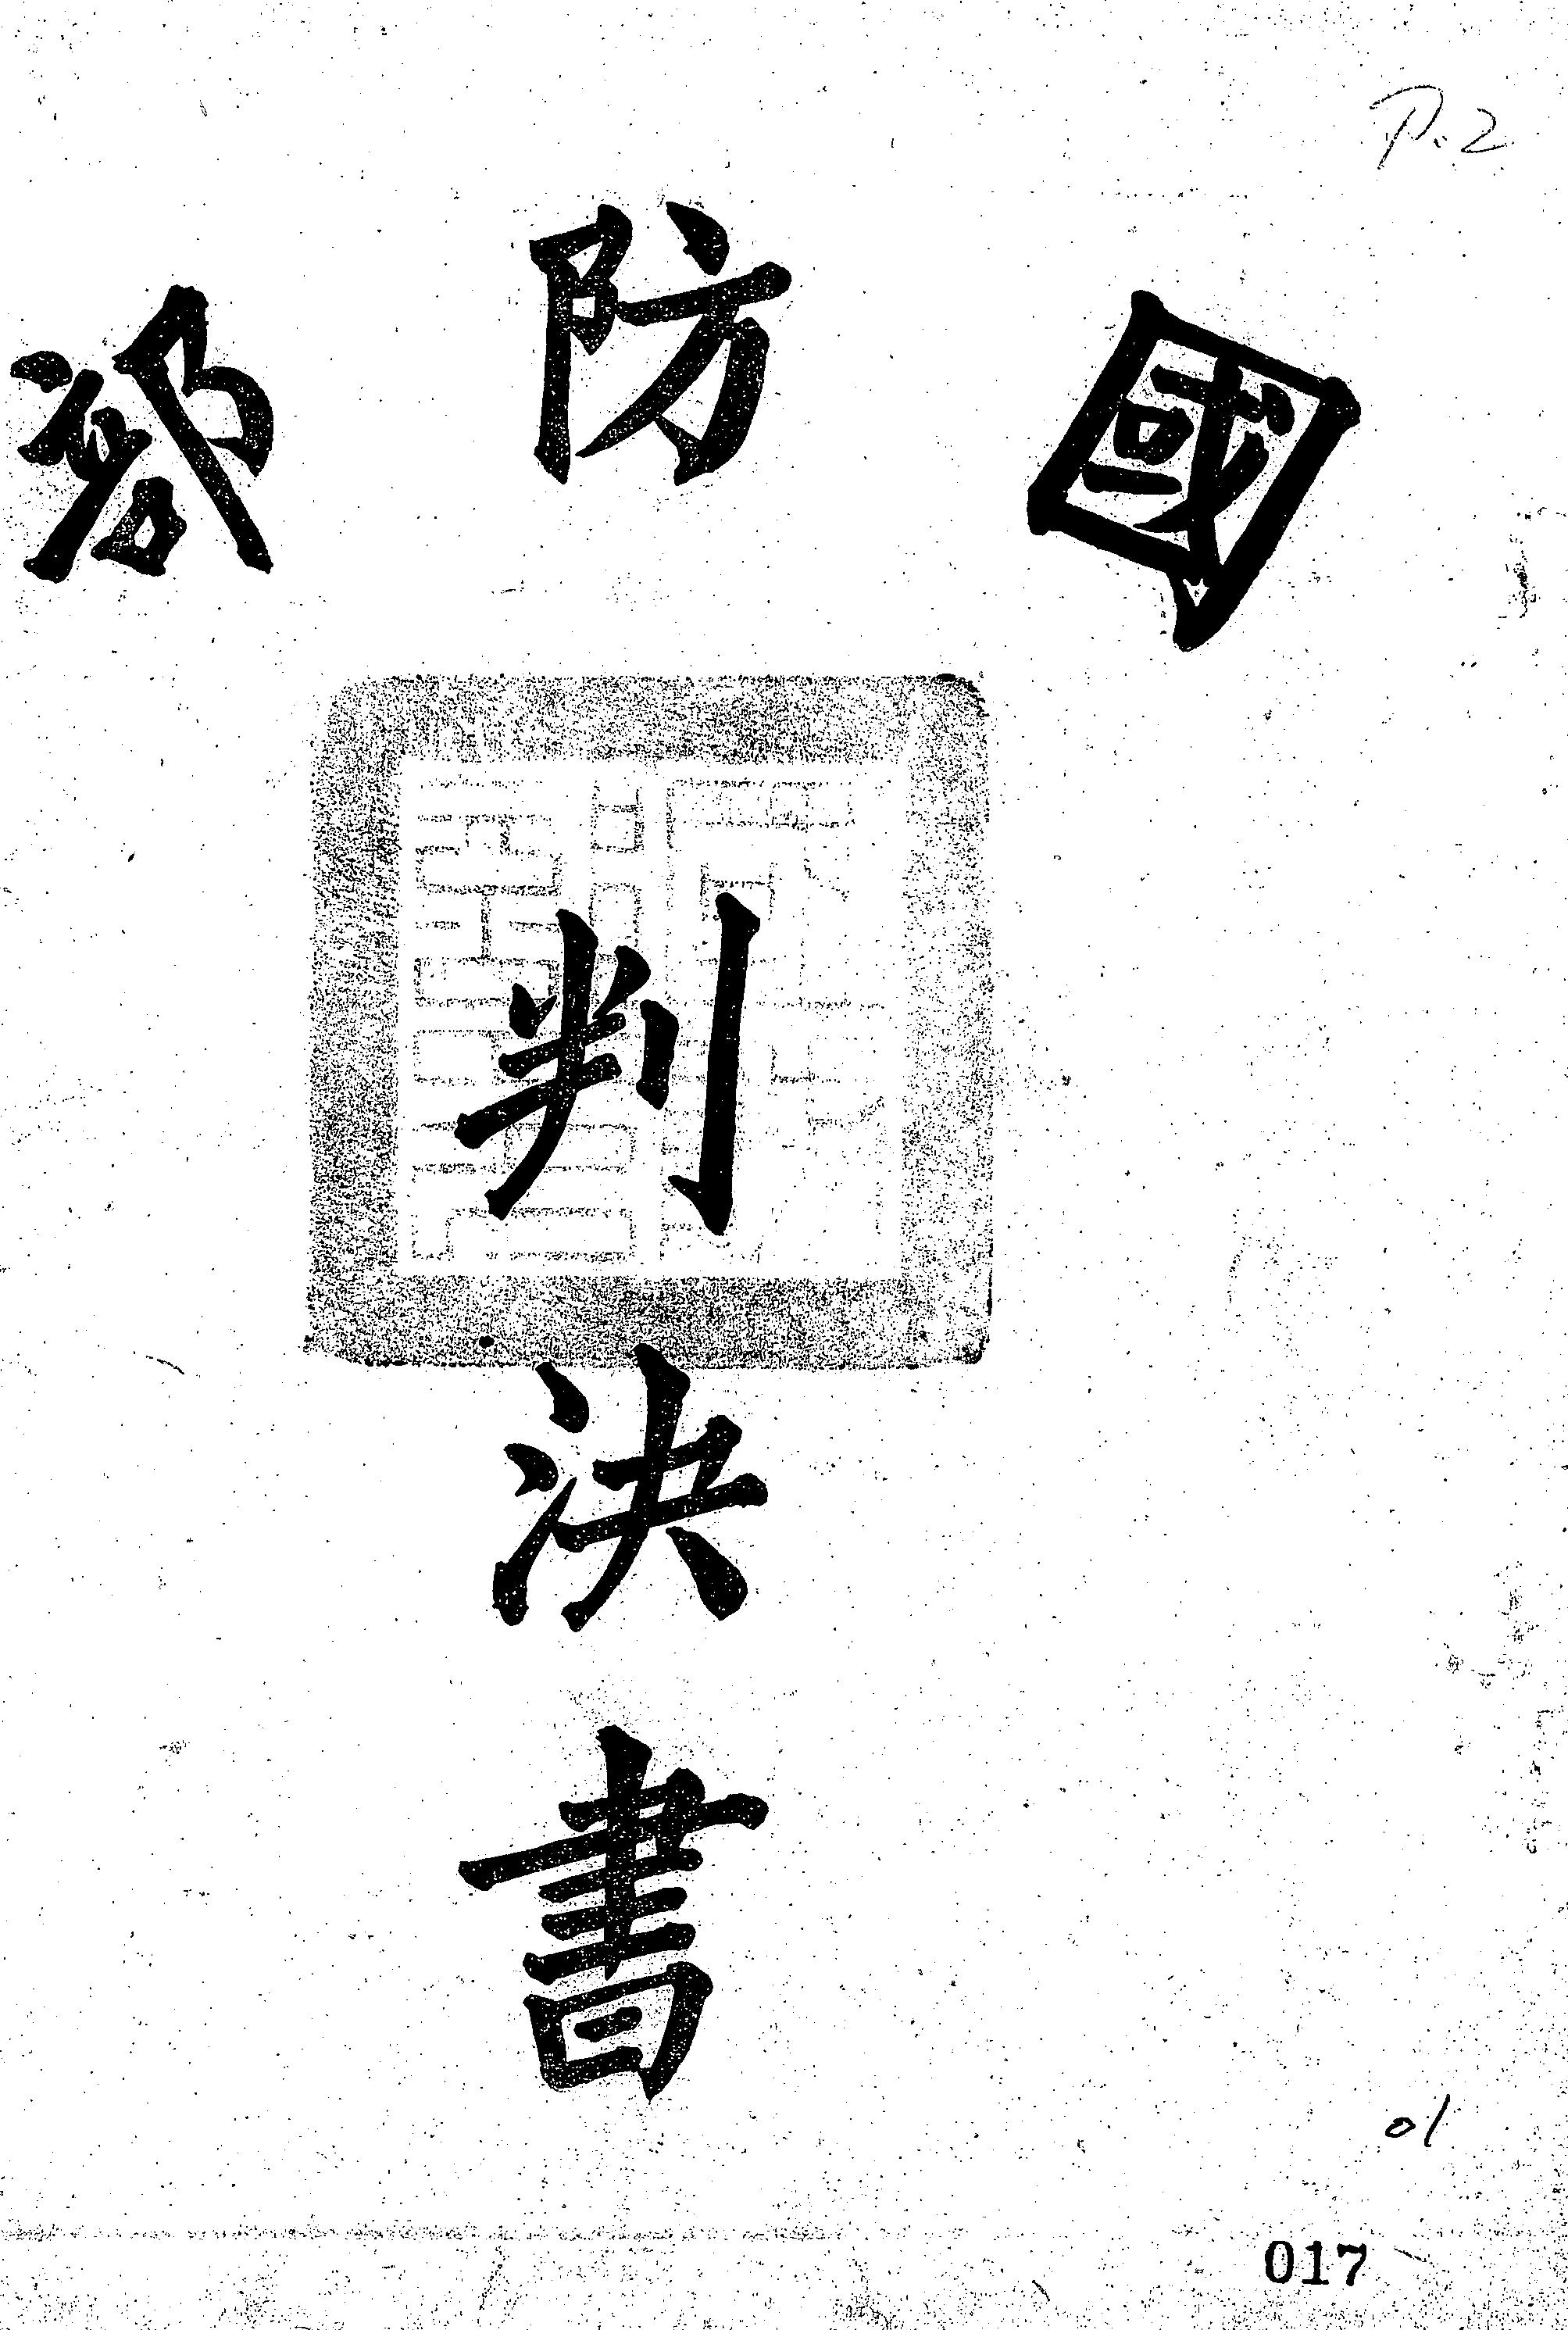 P.2
國防部
判
決
書
01
017